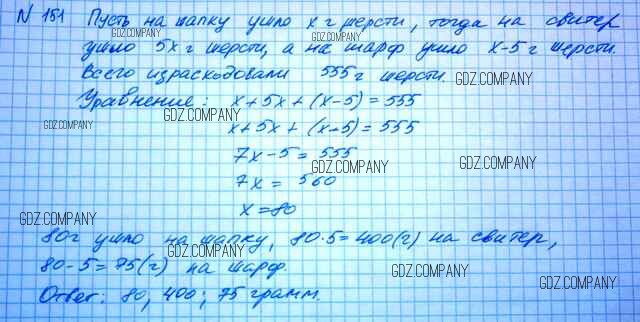 N 151 Пусть на шапку ушло x г шерсти, тогда на свитер
ушло 5x г шерсти, а на шарф ушло x-5 г шерсти.
Всего израсходовали 555 г шерсти.
Уравнение: x+5x+(x-5)=555
x+5x+(x-5)=555
7x-5=555
7x=560
x=80
80г ушло на шапку, 80·5=400(г) на свитер,
80-5=75(г) на шарф.
Ответ: 80, 400; 75 грамм.
GDZ.COMPANY
GDZ.COMPANY
GDZ.COMPANY
GDZ.COMPANY
GDZ.COMPANY
GDZ.COMPANY
GDZ.COMPANY
GDZ.COMPANY
GDZ.COMPANY
GDZ.COMPANY
GDZ.COMPANY
GDZ.COMPANY